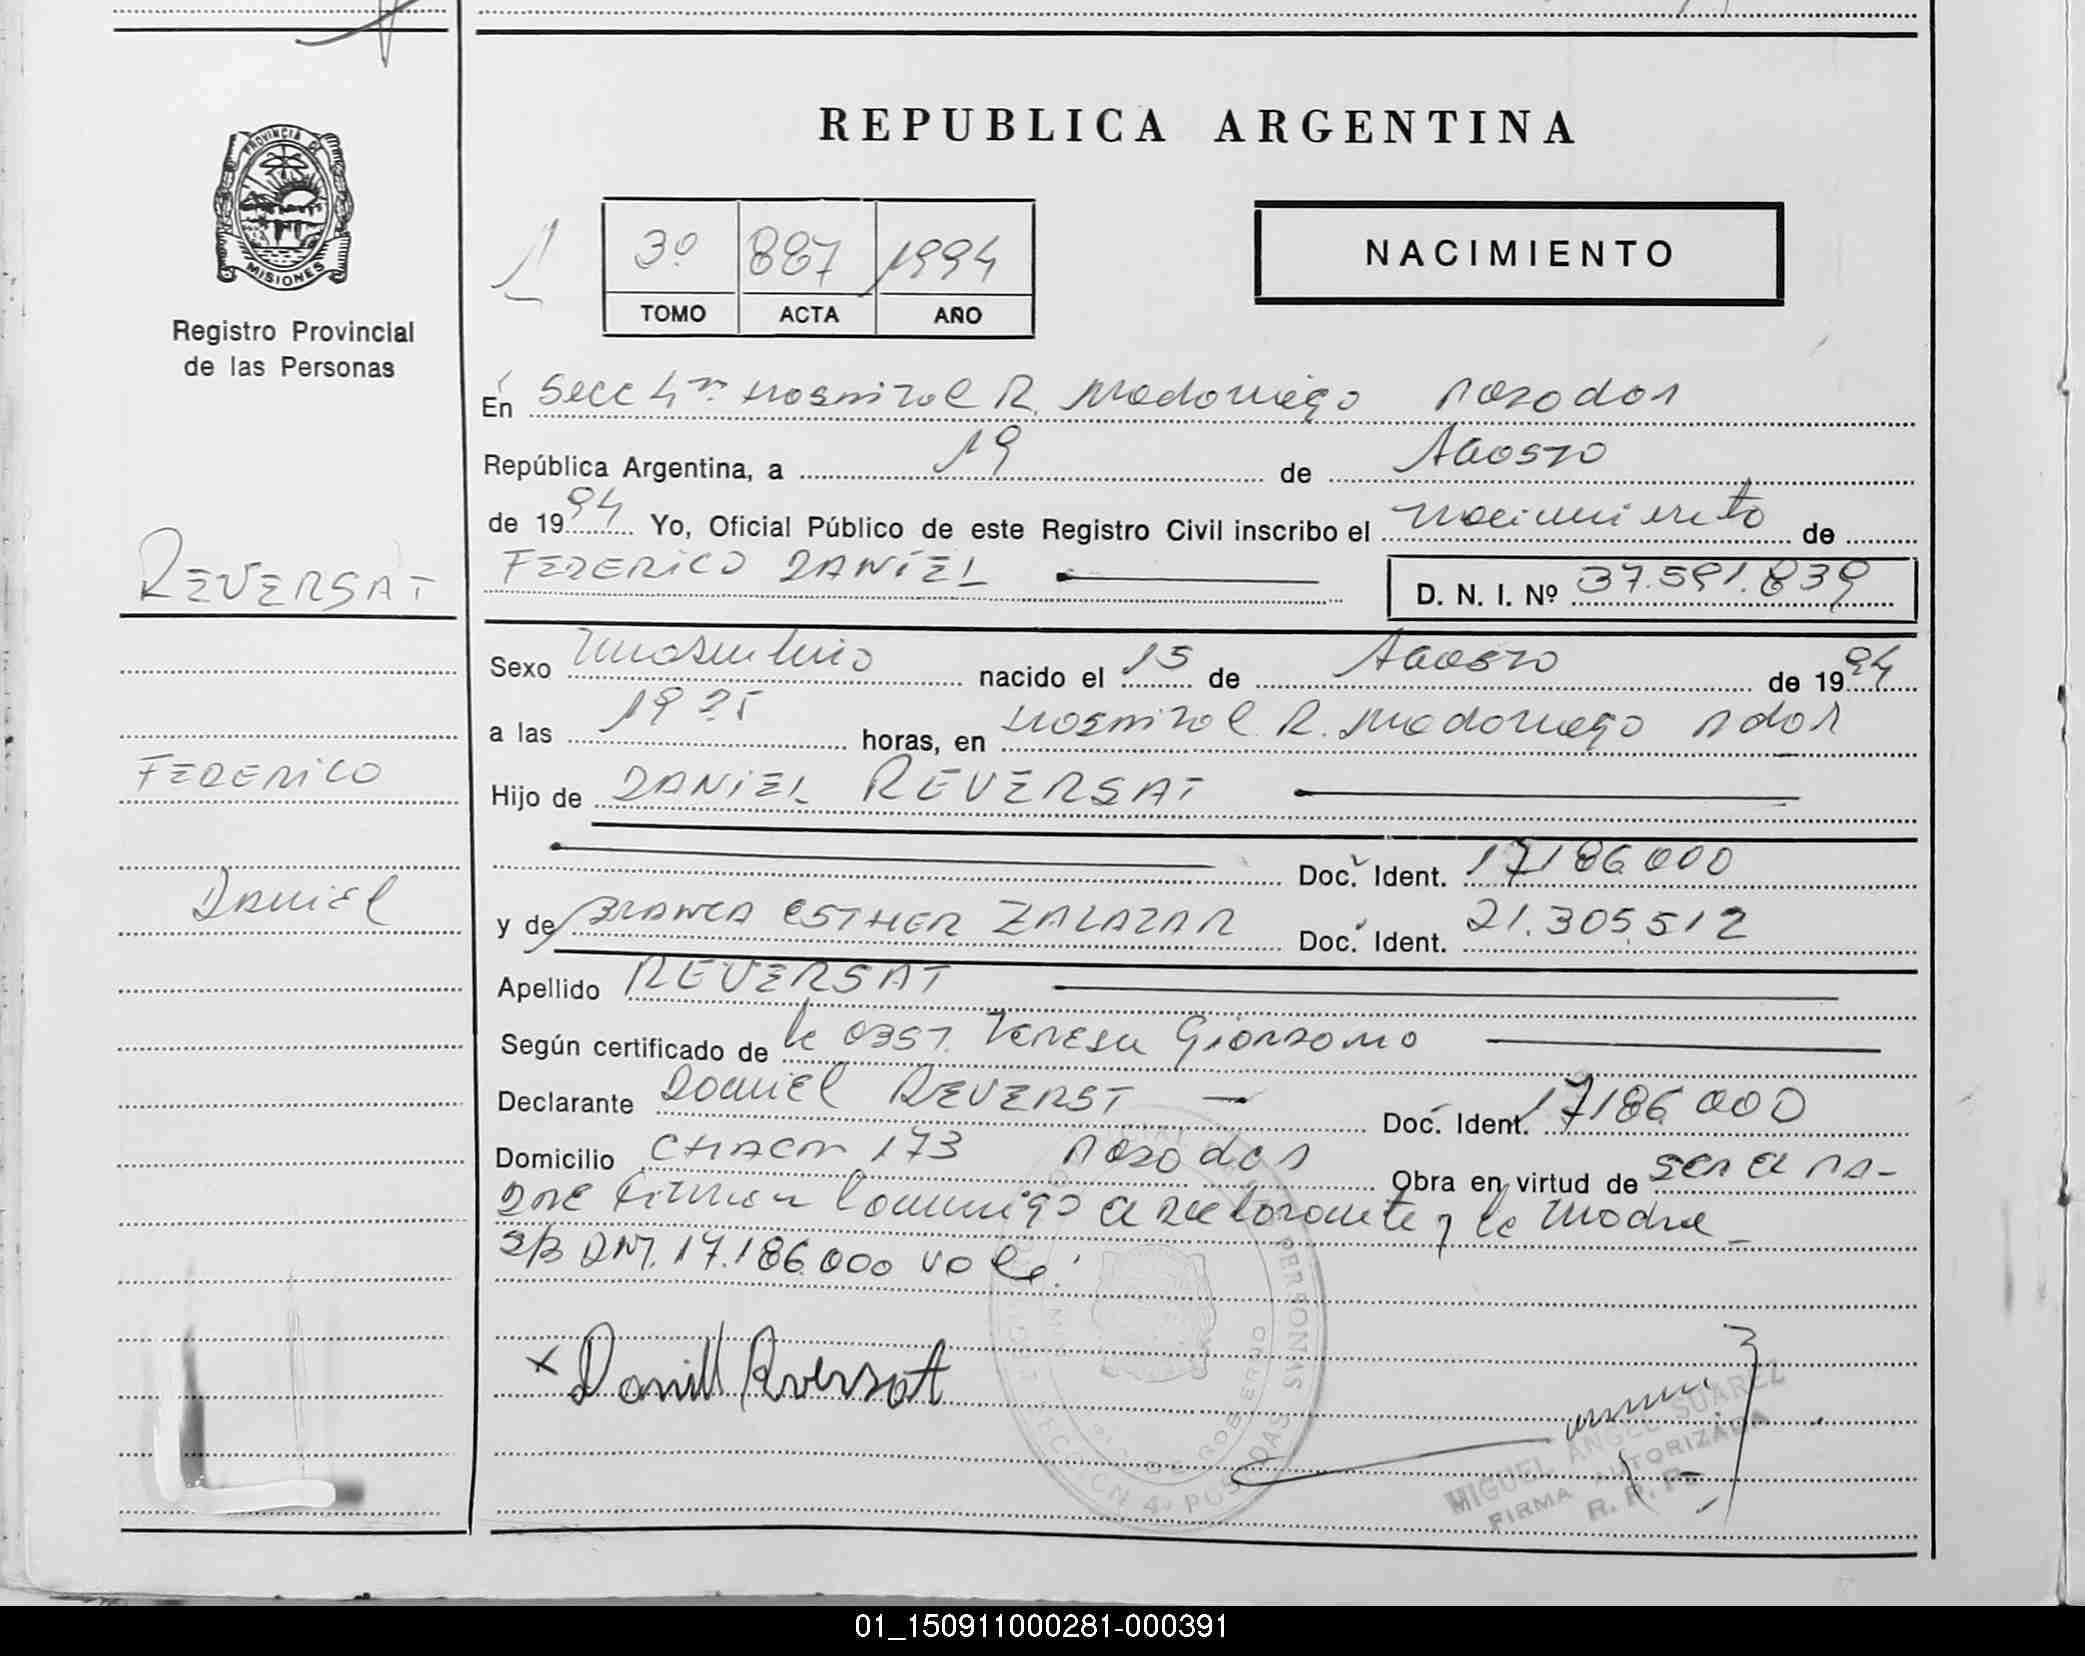 PROVINCIA DE
MISIONES
Registro Provincial
de las Personas
REPUBLICA ARGENTINA
3º 887 1994
TOMO ACTA AÑO
NACIMIENTO
En Secc 4ta Hospital R. Madariaga Posadas
República Argentina, a 19 de Agosto
de 1994 Yo, Oficial Público de este Registro Civil inscribo el nacimiento de
FEDERICO DANIEL D. N. I. Nº 37.591.839
REVERSAT
Sexo Masculino nacido el 15 de Agosto de 1994
a las 19 horas, en Hospital R. Madariaga Pdas
FEDERICO
Hijo de DANIEL REVERSAT
Doc. Ident. 17186000
DANIEL
y de BLANCA ESTHER ZALAZAR Doc. Ident. 21.305.512
Apellido REVERSAT
Según certificado de la Obst. Teresa
Declarante Daniel REVERST Doc. Ident. 17186000
Domicilio 173 Posadas Obra en virtud de ser el PA-
DRE Firman conmigo el declarante y la Madre
DNI. 17.186.000 vale.
x Daniel Reversat
PERSONAS
SECCION 4a POSADAS
DE GOBIERNO
MIGUEL ANGEL SUAREZ
FIRMA AUTORIZADA
R. P. P.
01_150911000281-000391